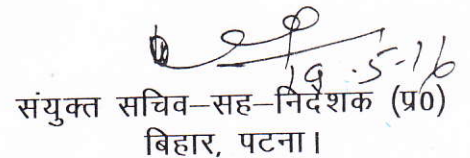 19.5-16
संयुक्त सचिव–सह–निदेशक (प्र0)
बिहार, पटना।